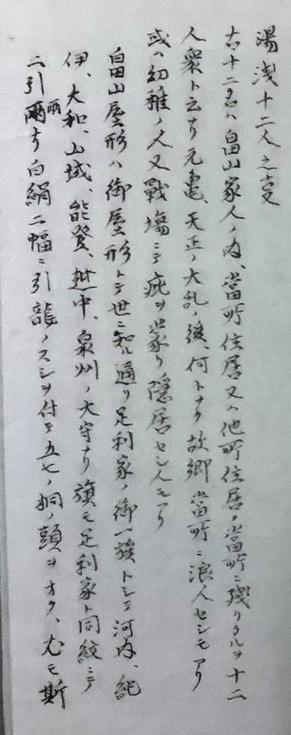 湯浅十二人之事
右十二名ハ畠山家人ノ内、當町住居又ハ他町住居ノ當町ニ残リタルヲ十二
人衆ト云ナリ元亀、天正ノ大乱ノ後、何トナク故郷當町ニ浪人セシモアリ
或ハ幼稚ノ人又戰場ニテ疵ヲ蒙リ隠居セシ人モアリ
畠山屋形ハ御屋形トテ世ニ知ル通リ足利家ノ御一族トシテ河内、紀
伊、大和、山城、能登、越中、泉州ノ大守ナリ旗モ足利家ト同紋ニテ
二引兩ナリ白絹二幅ニ引龍ノスシヲ付テ五七ノ桐ノ頭ヲオク、尤モ斯